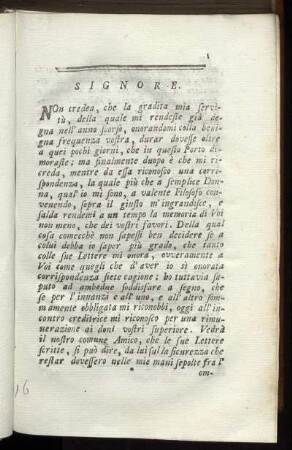 1
SIGNORE.
NOn credea, che la gradita mia servi-
tù, della quale mi rendeste già de-
gna nell'anno scorso, onorandomi colla beni-
gna frequenza vostra, durar dovesse oltre
a quei pochi giorni, che in questo Porto di-
moraste; ma finalmente duopo è che mi ri-
creda, mentre da essa riconosco una corri-
spondenza, la quale più che a semplice Don-
na, qual'io mi sono, a valente Filosofo con-
venendo, sopra il giusto m'ingrandisce, e
salda rendemi a un tempo la memoria di Voi
non meno, che dei vostri favori. Della qual
cosa comecchè non sapessi ben decidere se a
colui debba io saper più grado, che tanto
colle sue Lettere mi onora, ovveramente a
Voi come quegli che d'aver io sì onorata
corrispondenza siete cagione; ho tuttavia sa-
puto ad ambedue soddisfare a segno, che
se per l'innanzi e all'uno, e all'altro som-
mamente obbligata mi riconobbi, oggi all'in-
contro creditrice mi riconosco per una rimu-
nerazione ai doni vostri superiore. Vedrà
il nostro comune Amico, che le sue Lettere
scritte, si può dire, da lui sulla sicurezza che
restar dovessero nelle mie mani sepolte fra l'
om-
16